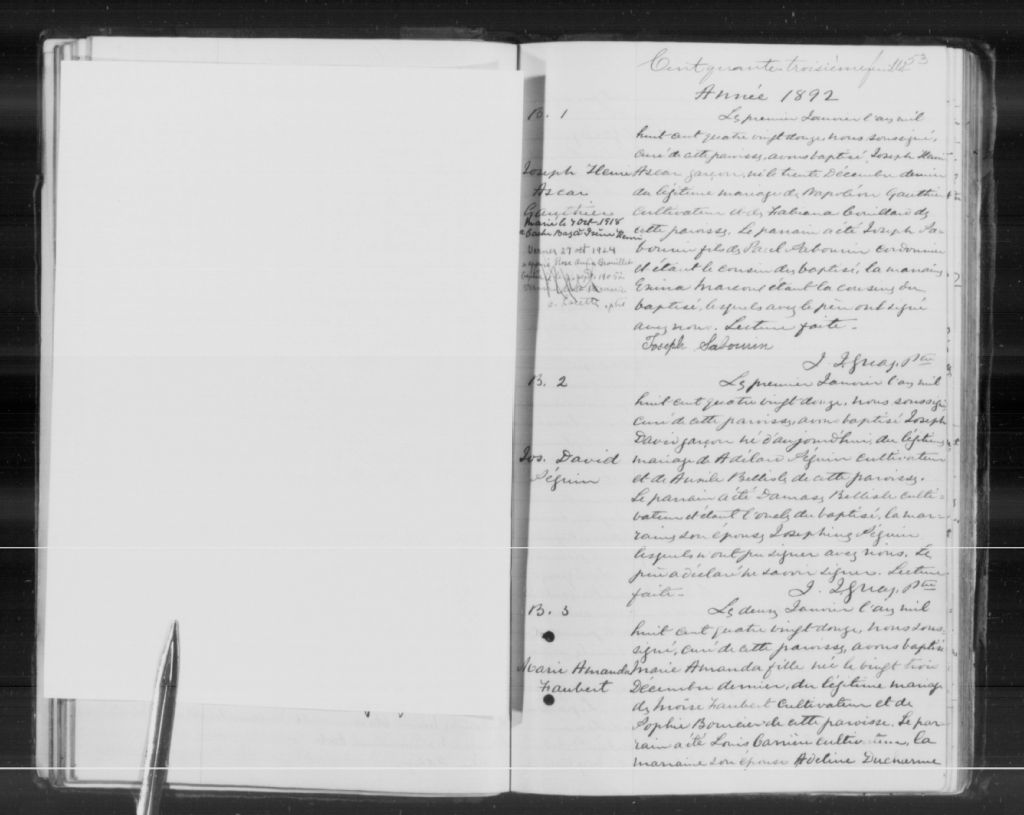 Cent quarante troisième feuillet 53
Année 1892
B. 1
Joseph Henri
Ascar
Gauthier
Marié le 7 Oct 1918
Verner 27 oct 1924
Le premier Janvier l'an mil
huit cent quatre vingt douze, nous soussigné,
curé de cette paroisse, avons baptisé, Joseph Henri
Ascar garçon, né le trente Décembre dernier
du légitime mariage de Napoléon Gauthier
cultivateur et de Fabiana Couillard de
cette paroisse. Le parrain a été Joseph Sa-
bourin fils de Paul Sabourin cordonnier
et étant le cousin du baptisé, la marraine
Exina Marcoux étant la cousine du
baptisé, lesquels avec le père ont signé
avec nous. Lecture faite.
Joseph Sabourin
J. I. Gnay, Ptre
B. 2
Jos. David
Séguin
Le premier Janvier l'an mil
huit cent quatre vingt douze, nous soussigné
curé de cette paroisse, avons baptisé Joseph
David garçon né d'aujourd'hui, du légitime
mariage de Adélard Séguin cultivateur
et de Auxile Bellisle de cette paroisse.
Le parrain a été Damase Bellisle culti-
vateur et étant l'oncle du baptisé, la mar-
raine son épouse Josephine Séguin
lesquels n'ont pu signer avec nous. Le
père a déclaré ne savoir signer. Lecture
faite.
J. I. Gnay, Ptre
B. 3
Marie Amanda
Faubert
Le deux Janvier l'an mil
huit cent quatre vingt douze, nous sous-
signé, curé de cette paroisse, avons baptisé
Marie Amanda fille née le vingt trois
Décembre dernier, du légitime mariage
de Moïse Faubert cultivateur et de
Sophie Bourcier de cette paroisse. Le par-
rain a été Louis Carrière cultivateur, la
marraine son épouse Adeline Ducharme